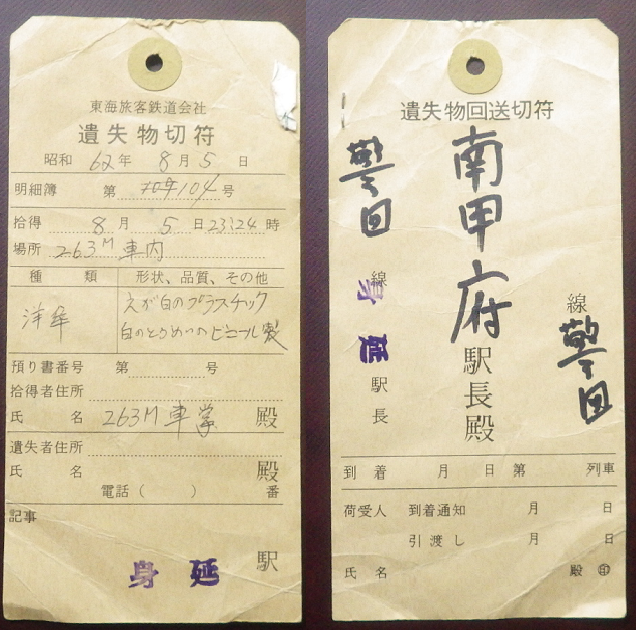 東海旅客鉄道会社
遺失物切符
昭和 62年 8月 5日
明細簿 第 104号
拾得 8月 5日23:24時
場所 263M 車内
種類 形状、品質、その他
洋傘 えが白のプラスチック
白のとうめいのビニール製
預り書番号 第 号
拾得者住所
氏名 263M 車掌 殿
遺失者住所
氏名 殿
電話( ) 番
記事
身延 駅
遺失物回送切符
南甲府駅長殿
線
線 身延 駅長
到着 月 日 第 列車
荷受人 到着通知 月 日
引渡し 月 日
氏名 殿 印